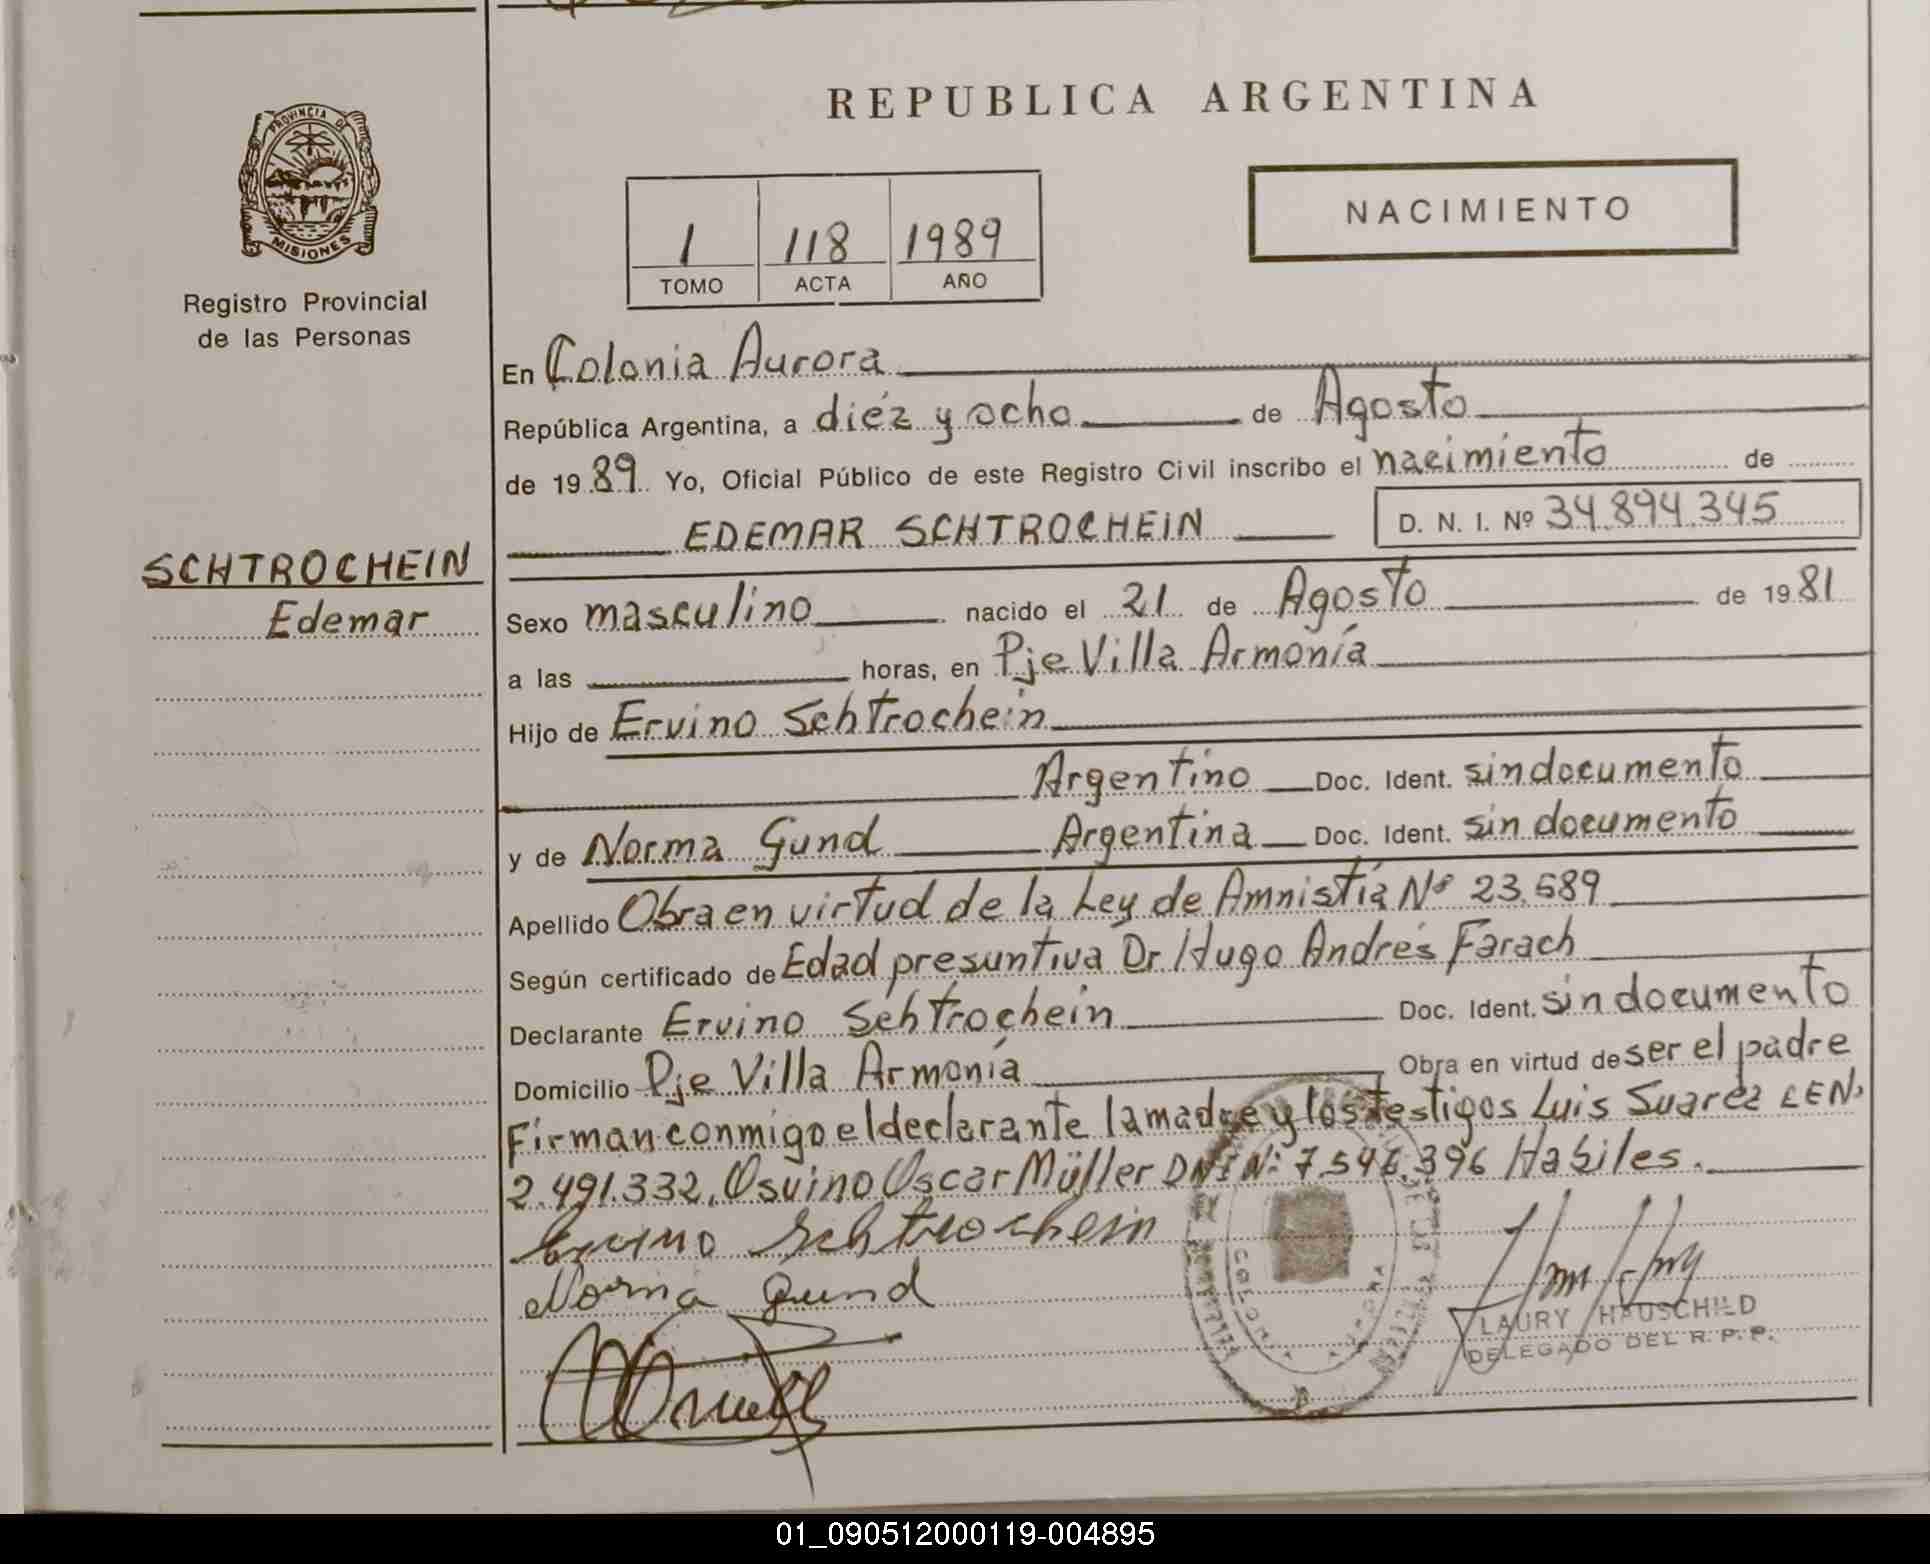 REPUBLICA ARGENTINA
PROVINCIA DE
MISIONES
Registro Provincial
de las Personas
NACIMIENTO
1 118 1989
TOMO ACTA AÑO
En Colonia Aurora
República Argentina, a diéz y ocho de Agosto
de 1989. Yo, Oficial Público de este Registro Civil inscribo el nacimiento de
EDEMAR SCHTROCHEIN D. N. I. Nº 34.894.345
SCHTROCHEIN
Edemar
Sexo masculino nacido el 21 de Agosto de 1981
a las horas, en Pje Villa Armonía
Hijo de Ervino Schtrochein
Argentino Doc. Ident. sin documento
y de Norma Gund Argentina Doc. Ident. sin documento
Apellido Obra en virtud de la Ley de Amnistía Nº 23.589
Según certificado de Edad presuntiva Dr Hugo Andrés Farach
Declarante Ervino Schtrochein Doc. Ident. sin documento
Domicilio Pje Villa Armonía Obra en virtud de ser el padre
Firman conmigo el declarante la madre y los testigos Luis Suarez LEN:
2.491.332, Osvino Oscar Müller DNI N: 7.546.396 Habiles.
Ervino Schtrochein
Norma Gund
COLONIA AURORA
LAURY HAUSCHILD
DELEGADO DEL R. P. P.
01_090512000119-004895